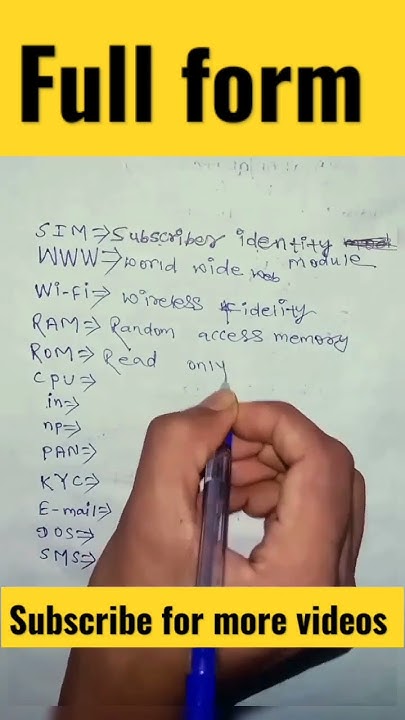 Full form
SIM⇒Subscriber identity
WWW⇒world wide web module
Wi-Fi⇒ wireless Fidelity
RAM⇒ Random access memory
ROM⇒ Read only
CPU⇒
in⇒
np⇒
PAN⇒
KYC⇒
E-mail⇒
DOS⇒
SMS⇒
Subscribe for more videos